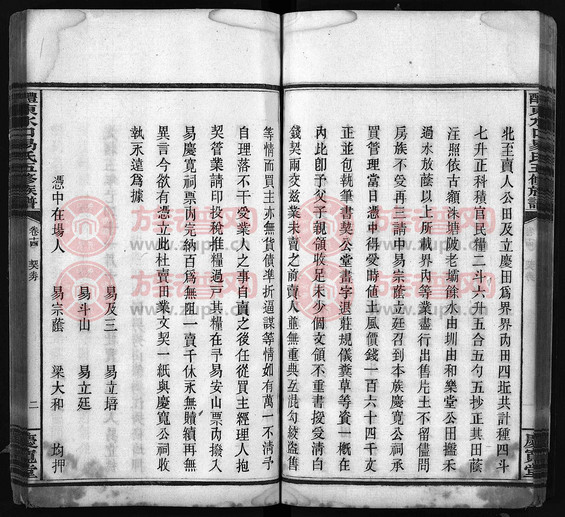 醴東水口易氏五修族譜
北至賣人公田及立慶田爲界界內田四坵共計種四斗
七升正科積官民糧二斗六升五合五勺五抄正其田蔭
注照依古額洙塘陂老壩餘水由圳由和樂堂公田盤禾
過水放蔭以上所載界內等業盡行出售片土不留儘問
房族不受再三請中易宗蔭立廷召到本族慶寬公祠承
買管理當日憑中得受時値土風價錢一百六十四千文
正並包執筆書契公堂畫字退莊規儀糞草等資一槪在
內此卽子父手親領收足未少個文領不重書授受淸白
錢契兩交茲業未賣之前賣人並無重典互混勾絞盜售
等情而買主亦無貨債準折逼謀等情如有萬一不淸予
自理落不干受業人之事自賣之後任從買主經理人抱
契管業請印投稅推糧過戶其糧在予易安山票內撥入
易慶寬祠票內完納百爲無阻一賣千休永無贖續再無
異言今欲有憑立此杜賣田業文契一紙與慶寬公祠收
執永遠爲據
憑中在場人
易及三 易立培
易斗山 易立廷
易宗蔭 梁大和 均押
醴東水口易氏五修族譜 卷
契券
二
慶寬堂
族谱网
zupu.cn